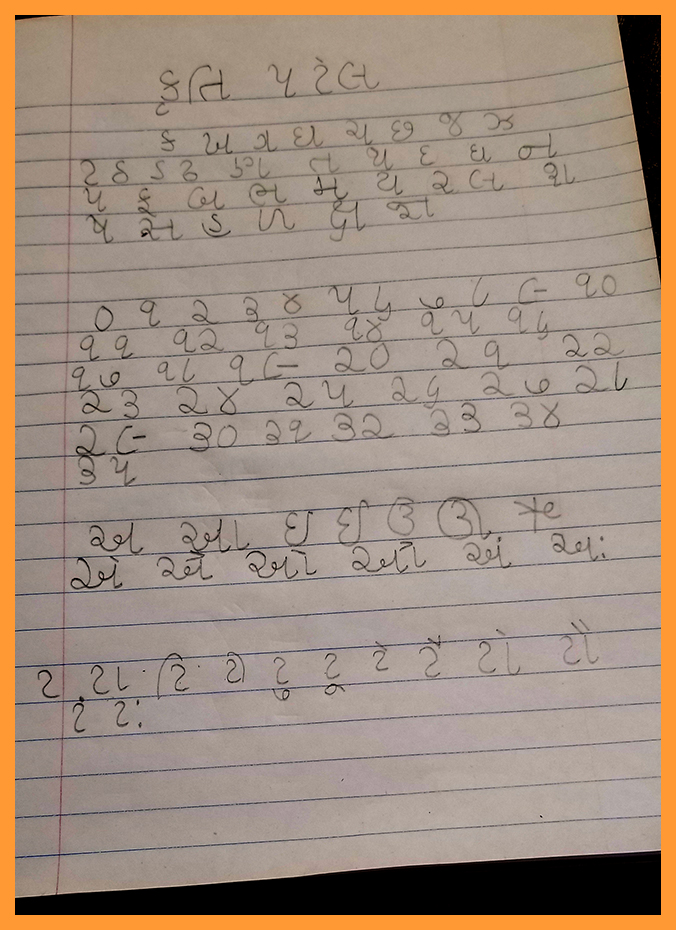 કૃતિ પટેલ
ક ખ ગ ઘ ચ છ જ ઝ
ટ ઠ ડ ઢ ણ ત થ દ ધ ન
પ ફ બ ભ મ ય ર લ વ શ
ષ સ હ ળ ક્ષ જ્ઞ
૦ ૧ ૨ ૩ ૪ ૫ ૬ ૭ ૮ ૯ ૧૦
૧૧ ૧૨ ૧૩ ૧૪ ૧૫ ૧૬
૧૭ ૧૮ ૧૯ ૨૦ ૨૧ ૨૨
૨૩ ૨૪ ૨૫ ૨૬ ૨૭ ૨૮
૨૯ ૩૦ ૩૧ ૩૨ ૩૩ ૩૪
૩૫
અ આ ઇ ઈ ઉ ઊ ઋ
એ ઐ ઓ ઔ અં અઃ
ટ ટા ટિ ટી ટુ ટૂ ટે ટૈ ટો ટૌ
ટં ટઃ